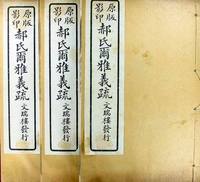 原版
影印
郝氏爾雅義疏
文瑞樓發行
原版
影印
郝氏爾雅義疏
文瑞樓發行
原版
影印
郝氏爾雅義疏
文瑞樓發行